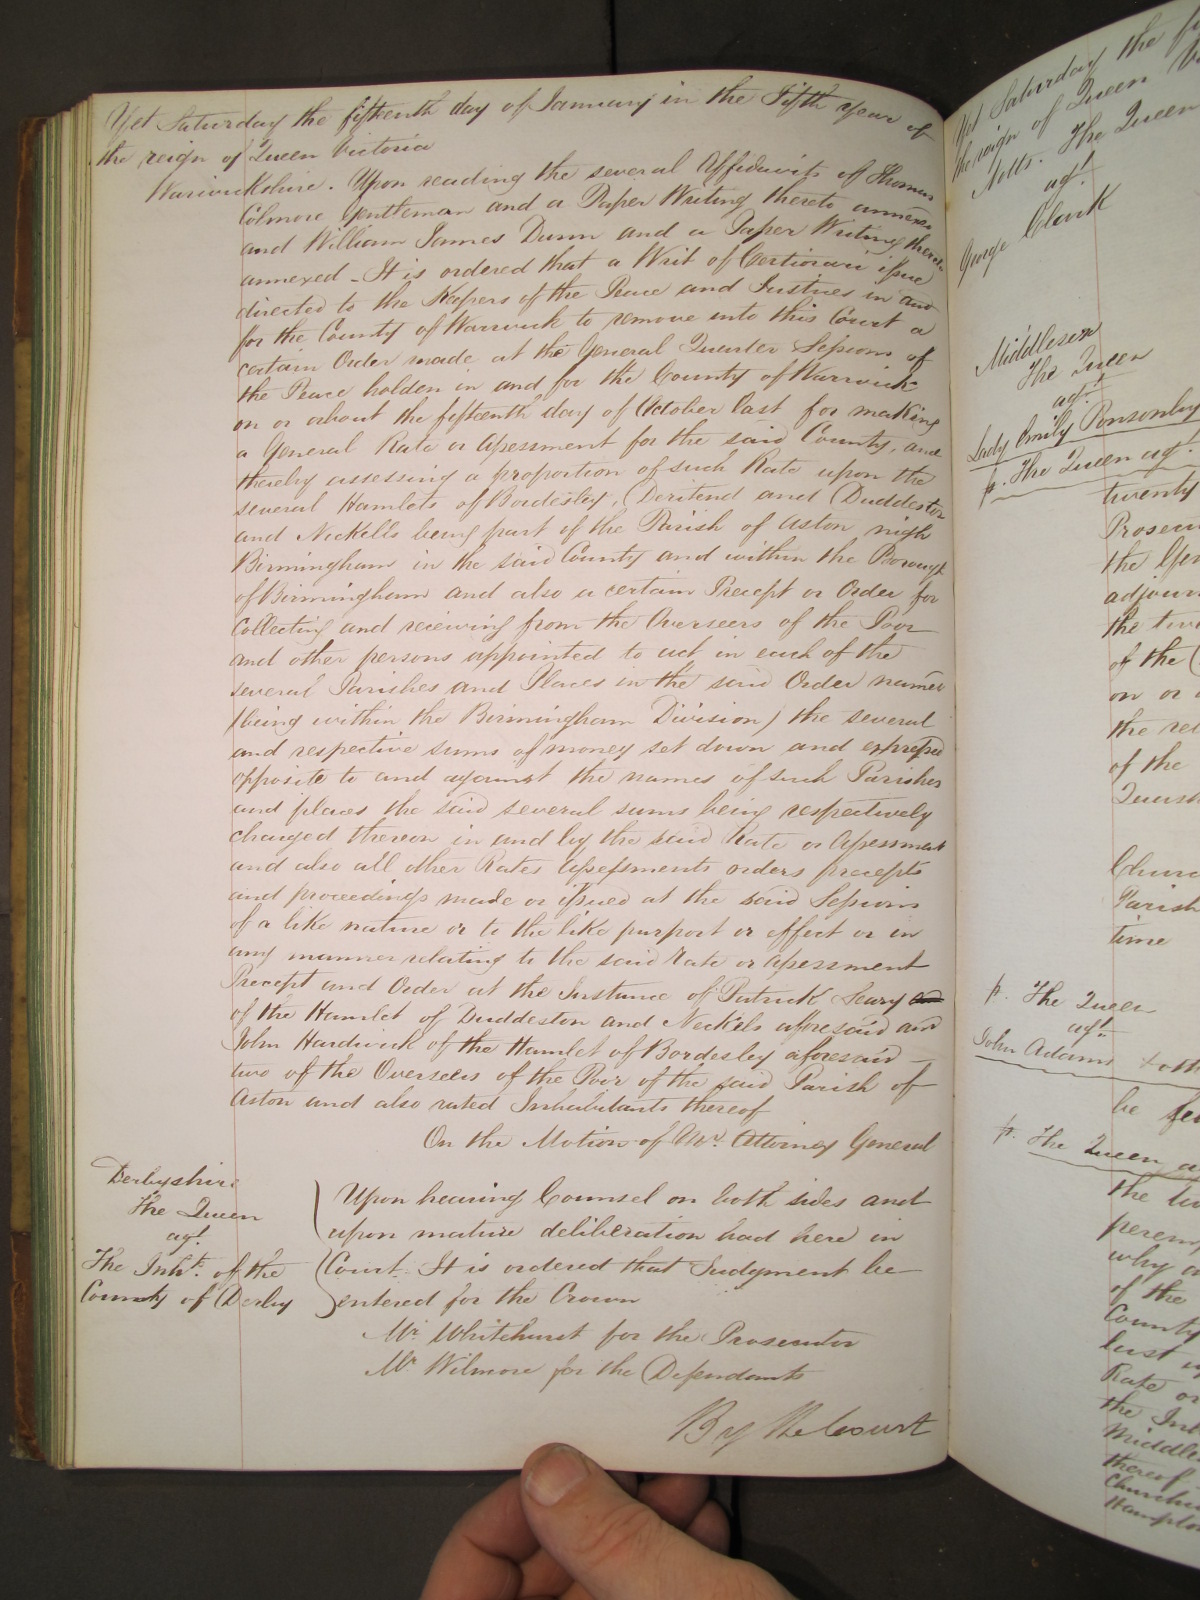 Yet Saturday the fifteenth day of January in the Fifth Year of
the reign of Queen Victoria
Warwickshire. Upon reading the several Affidavits of Thomas
Colmore Gentleman and a Paper Writing thereto annexed
and William James Dunn and a Paper Writing thereto
annexed - It is ordered that a Writ of Certiorari issue
directed to the Keepers of the Peace and Justices in and
for the County of Warwick to remove into this Court a
certain Order made at the General Quarter Sessions of
the Peace holden in and for the County of Warwick
on or about the fifteenth day of October last for making
a General Rate or Assessment for the said County, and
thereby assessing a proportion of such Rate upon the
several Hamlets of Bordesley, Deritend and Duddeston
and Neckells being part of the Parish of Aston nigh
Birmingham in the said County and within the Borough
of Birmingham and also a certain Precept or Order for
Collecting and receiving from the Overseers of the Poor
and other persons appointed to act in each of the
several Parishes and Places in the said Order named
(being within the Birmingham Division) the several
and respective sums of money set down and expressed
opposite to and against the names of such Parishes
and places the said several sums being respectively
charged thereon in and by the said Rate or Assessment
and also all other Rates Assessments orders precepts
and proceedings made or issued at the said Sessions
of a like nature or to the like purport or effect or in
any manner relating to the said Rate or Assessment
Precept and Order at the Instance of Patrick Leary and
of the Hamlet of Duddeston and Neckels aforesaid and
John Hardwick of the Hamlet of Bordesley aforesaid -
two of the Overseers of the Poor of the said Parish of
Aston and also rated Inhabitants thereof
On the Motion of Mr. Attorney General
Derbyshire
The Queen
agt.
The Inhts. of the
County of Derby
Upon hearing Counsel on both sides and
upon mature deliberation had here in
Court. It is ordered that Judgment be
entered for the Crown
Mr Whitehurst for the Prosecutor
Mr Wilmore for the Defendants
By the Court
Yet Saturday the
the reign of Queen
Notts. The Queen
agt.
George Clark
Middlesex
The Queen
agt.
Lady Emily Ponsonby
p. The Queen agt.
twenty
the
adjourn
the
of the
on or
the
of the
Parish
time
p. The Queen
agt.
John Adams + oth
be
p. The Queen
the
why
of the
County
last
Rate or
the
thereof